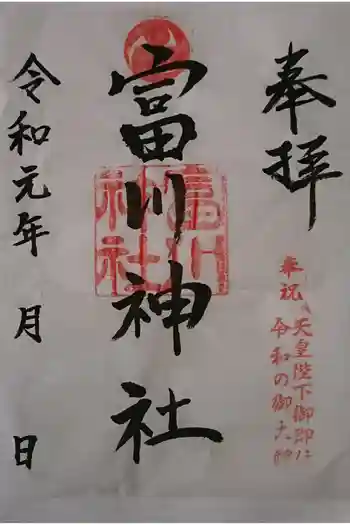 奉拝
奉祝 天皇陛下御即位
令和の御大
富川神社
富川神社
令和元年 月 日